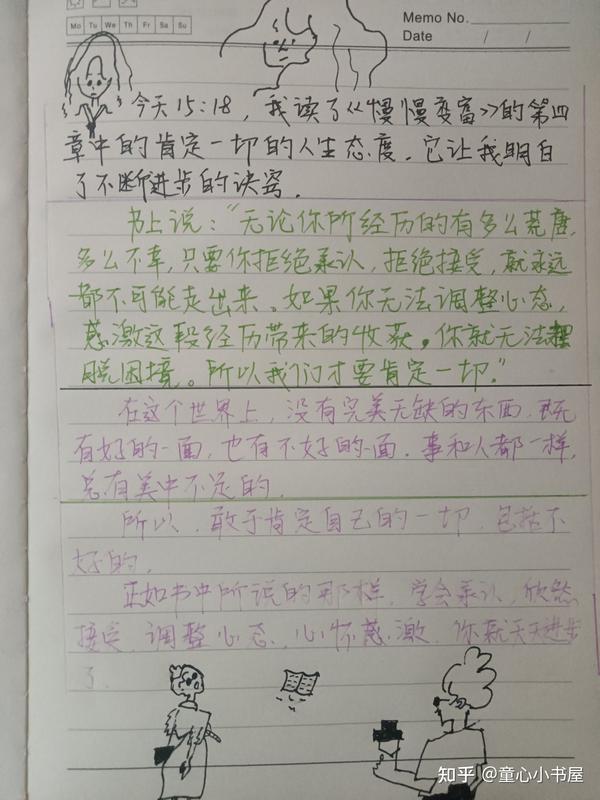 Memo No.
Mo Tu We Th Fr Sa Su
Date / /
今天15:18,我读了《慢慢变富》的第四
章中的肯定一切的人生态度.它让我明白
了不断进步的诀窍.
书上说:“无论你所经历的有多么荒唐,
多么不幸,只要你拒绝承认,拒绝接受,就永远
都不可能走出来。如果你无法调整心态,
感激这段经历带来的收获。你就无法摆
脱困扰。所以我们才要肯定一切.”
在这个世界上,没有完美无缺的东西.既
有好的一面,也有不好的一面.事和人都一样,
总有美中不足的.
所以,敢于肯定自己的一切.包括不
好的.
正如书中所说的那样.学会承认,欣然
接受,调整心态,心怀感激.你就天天进步
了.
知乎 @童心小书屋